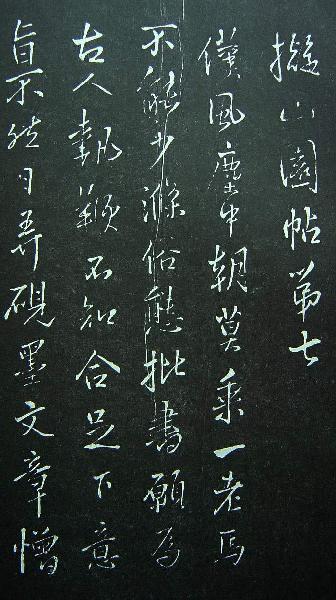 擬山園帖第七
僕風塵中朝莫乘一老馬
不能少滌俗態批書願為
古人執鞭不知合足下意
旨不然日弄硯墨文章憎